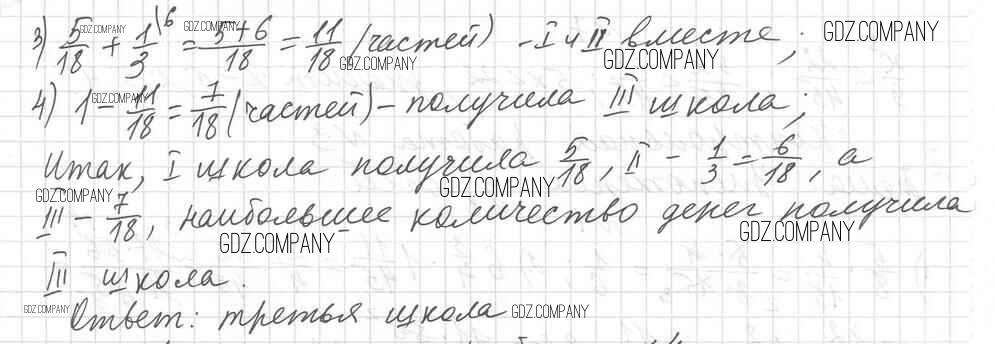 3) 5/18 + 1/3 \6 = 5+6/18 = 11/18 (частей) - I и II вместе;
4) 1 - 11/18 = 7/18 (частей) - получила III школа;
Итак, I школа получила 5/18, II - 1/3 = 6/18, а
III - 7/18, наибольшее количество денег получила
III школа.
Ответ: третья школа
GDZ.COMPANY
GDZ.COMPANY
GDZ.COMPANY
GDZ.COMPANY
GDZ.COMPANY
GDZ.COMPANY
GDZ.COMPANY
GDZ.COMPANY
GDZ.COMPANY
GDZ.COMPANY
GDZ.COMPANY
GDZ.COMPANY